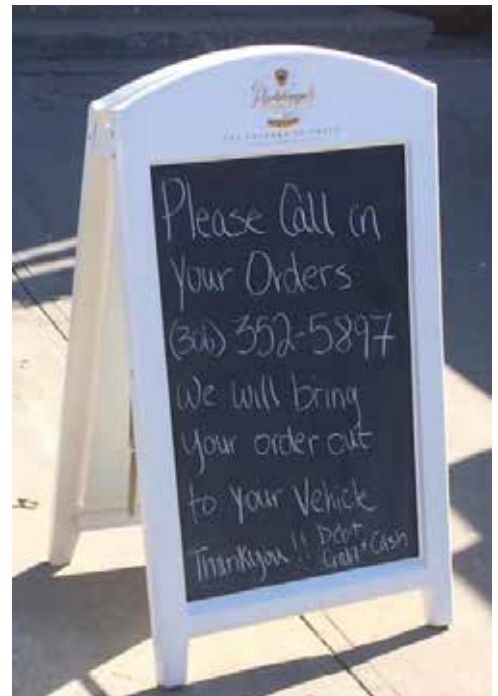 Please Call in
Your Orders
(306) 352-5897
We will bring
your order out
to your Vehicle
Thankyou!! Debit
Credit + Cash